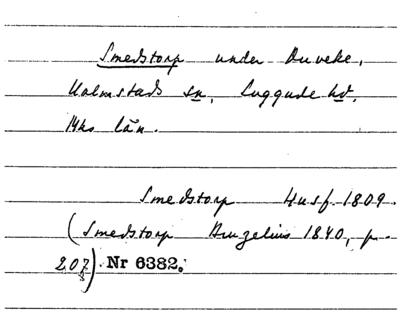 Smedstorp under Duveke,
Kalmstads sn, Luggude hd,
Mhs län.
Smedstorp Husf. 1809.
(Smedstorp Bruzelius 1840, p.
207) Nr 6382.